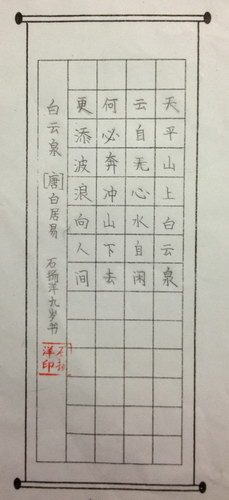 天平山上白云泉
云自无心水自闲
何必奔冲山下去
更添波浪向人间
白云泉 [唐] 白居易 石扬洋九岁书